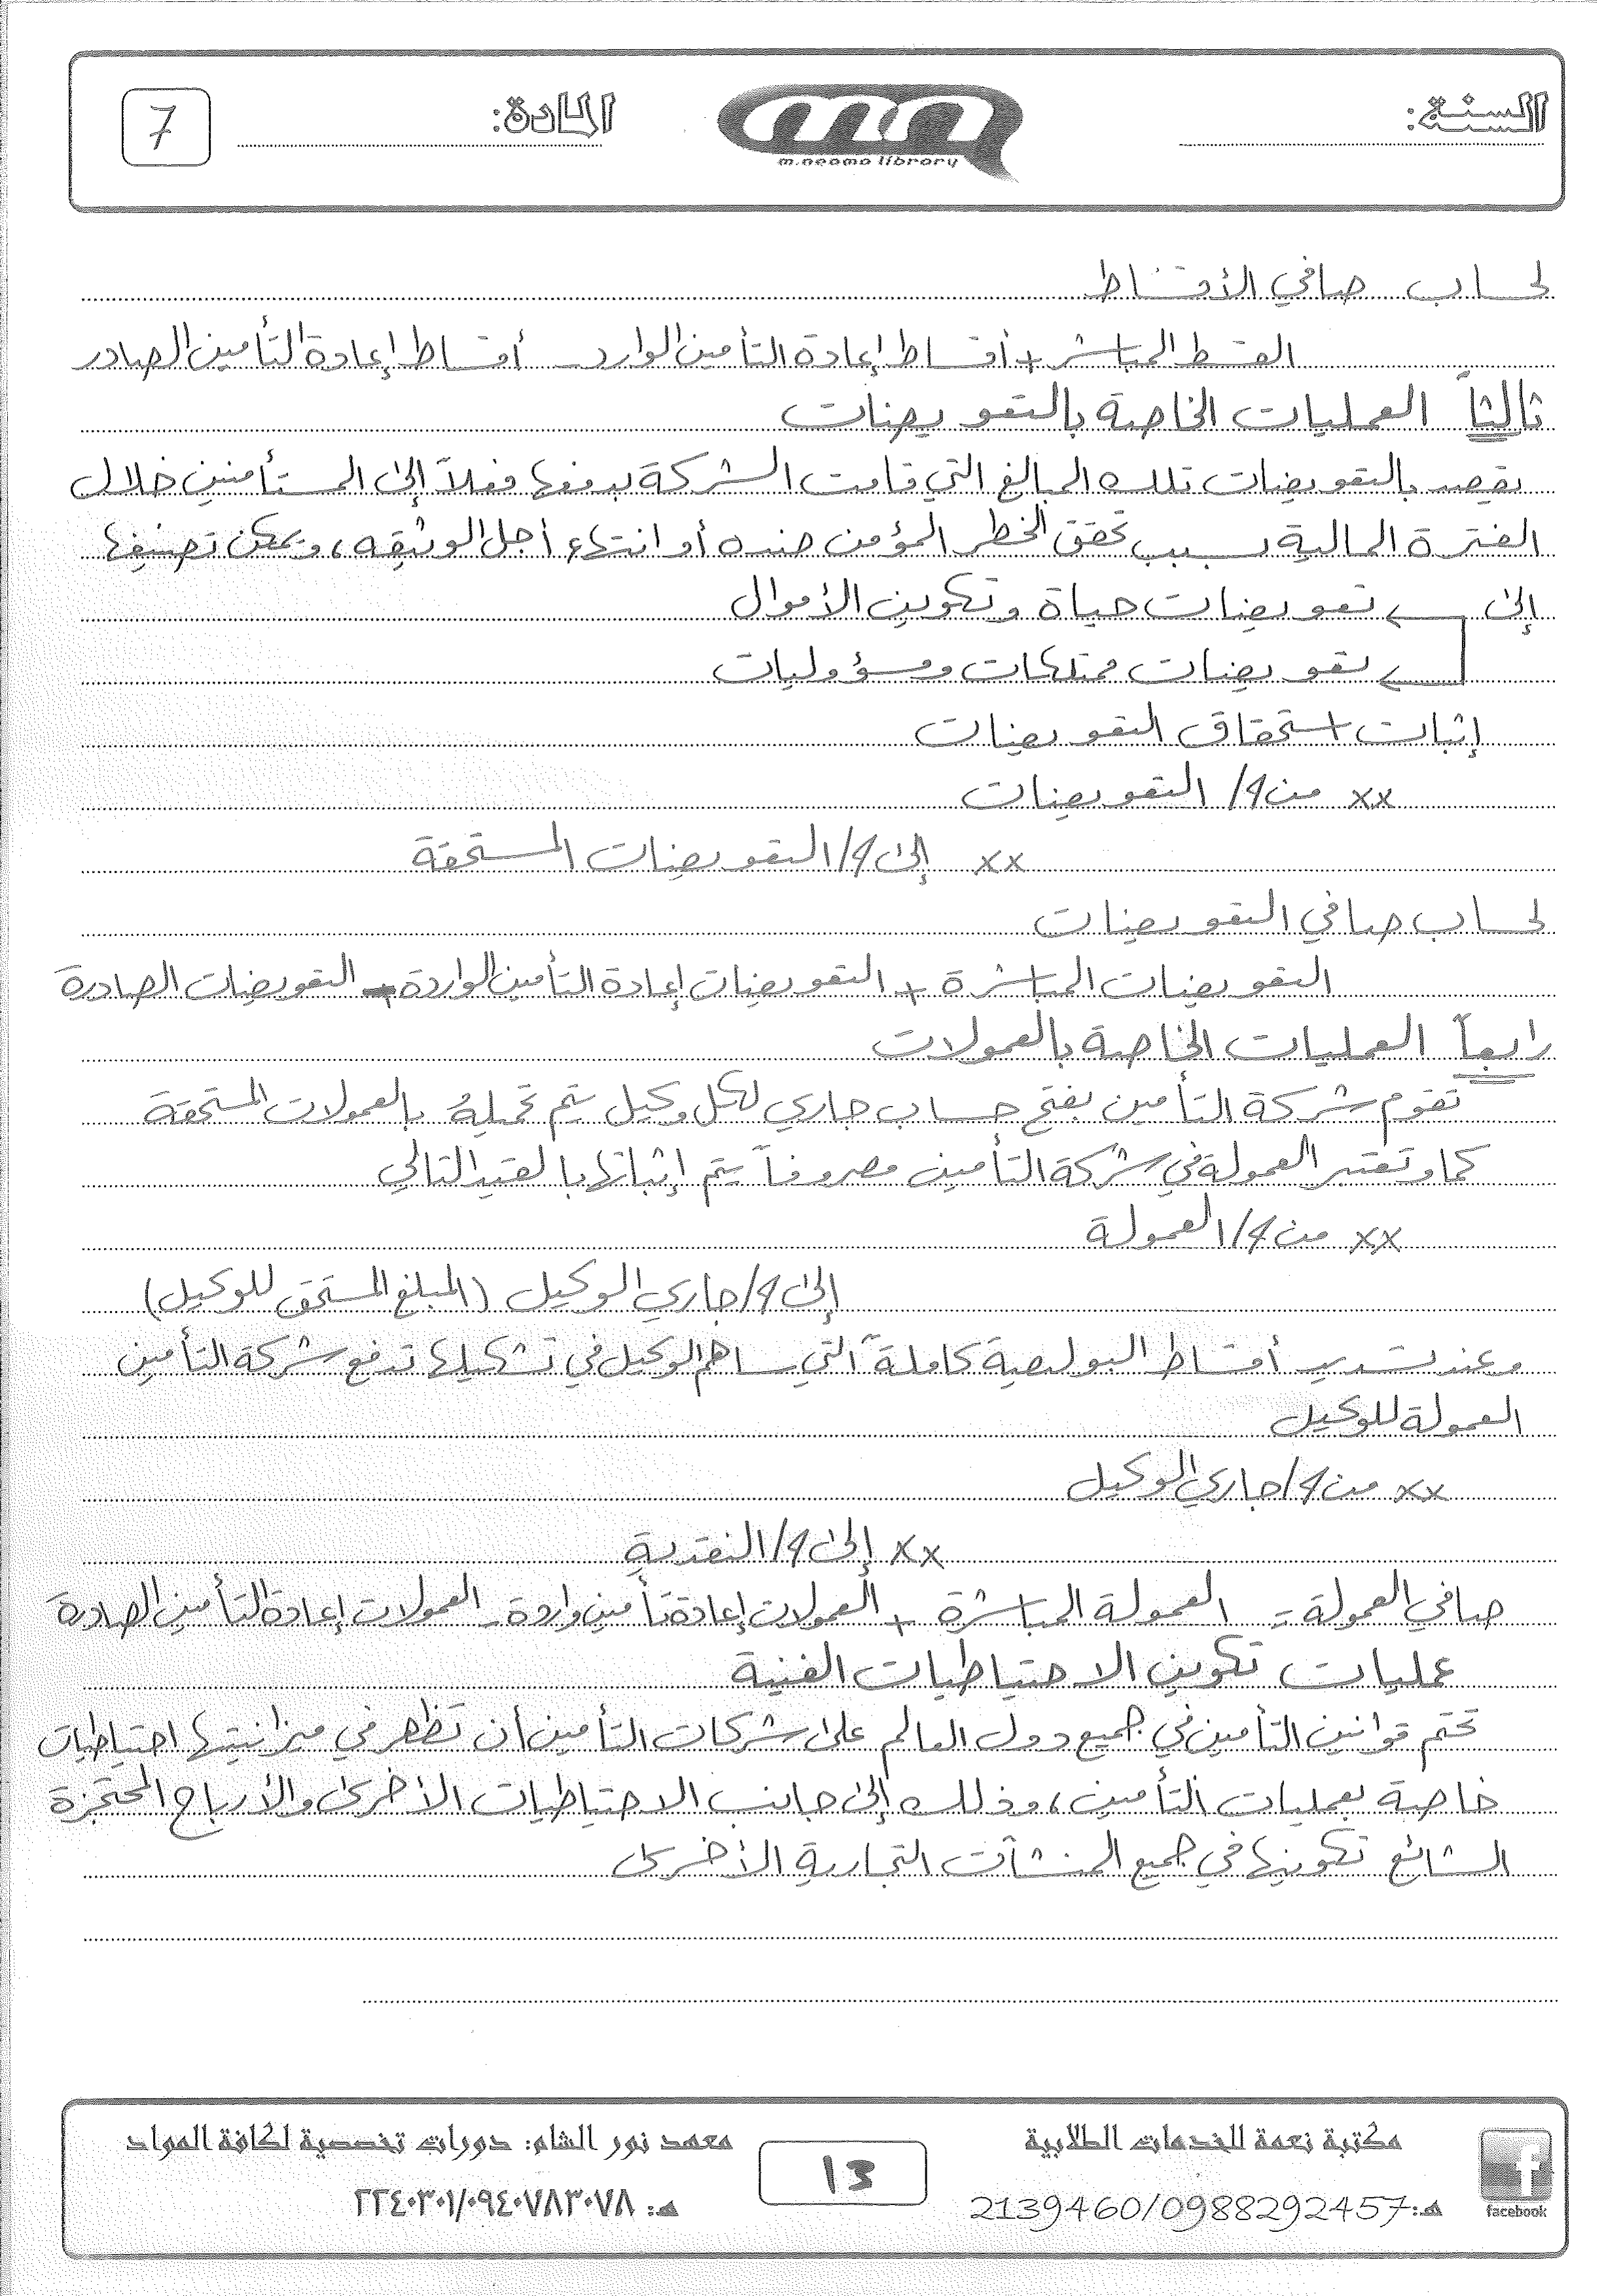 السنة:
m.neama library
المادة:
7
لحساب صافي الأقساط
القسط المباشر + أقساط إعادة التأمين الوارد - أقساط إعادة التأمين الصادر
ثالثاً العمليات الخاصة بالتعويضات
يقصد بالتعويضات تلك المبالغ التي قامت الشركة بدفعها فعلاً إلى المستأمنين خلال
الفترة المالية بسبب تحقق الخطر المؤمن ضده أو انتهاء أجل الوثيقه، ويمكن تصنيفها
إلى ← تعويضات حياة وتكوين الأموال
← تعويضات ممتلكات ومسؤوليات
إثبات استحقاق التعويضات
xx من ح/ التعويضات
xx إلى ح/ التعويضات المستحقة
لحساب صافي التعويضات
التعويضات المباشرة + التعويضات إعادة التأمين الواردة - التعويضات الصادرة
رابعاً العمليات الخاصة بالعمولات
تقوم شركة التأمين بفتح حساب جاري لكل وكيل يتم تحميله بالعمولات المستحقة
كما وتعتبر العمولة في شركة التأمين مصروفاً يتم إثباتها بالقيد التالي
xx من ح/ العمولة
إلى ح/ جاري الوكيل (المبلغ المستحق للوكيل)
وعند تسديد أقساط البوليصية كاملة التي ساهم الوكيل في تشكيلها تدفع شركة التأمين
العمولة للوكيل
xx من ح/ جاري الوكيل
xx إلى ح/ النقدية
صافي العمولة = العمولة المباشرة + العمولات إعادة تأمين واردة - العمولات إعادة التأمين الصادرة
عمليات تكوين الاحتياطيات الفنية
تحتم قوانين التأمين في جميع دول العالم على شركات التأمين أن تظهر في ميزانيتها احتياطيات
خاصة بعمليات التأمين، وذلك إلى جانب الاحتياطيات الأخرى والأرباح المحتجزة
الشائع تكوينها في جميع المنشآت التجارية الأخرى
facebook
مكتبة نعمة للخدمات الطلابية
هـ: 2139460/0988292457
13
معهد نور الشام: دورات تخصصية لكافة المواد
هـ: ٢٢٤٠٣٠١/٠٩٤٠٧٨٣٠٧٨